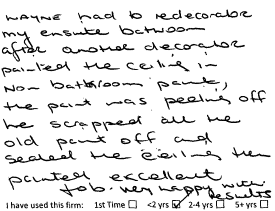 WAYNE had to redecorate
my ensuite bathroom
after another decorator
painted the ceiling in
Non bathroom paint,
the paint was peeling off
he scrapped all the
old paint off and
sealed the ceiling then
painted excellent
Job. very happy with
results
I have used this firm: 1st Time ☐ <2 yrs ☑ 2-4 yrs ☐ 5+ yrs ☐